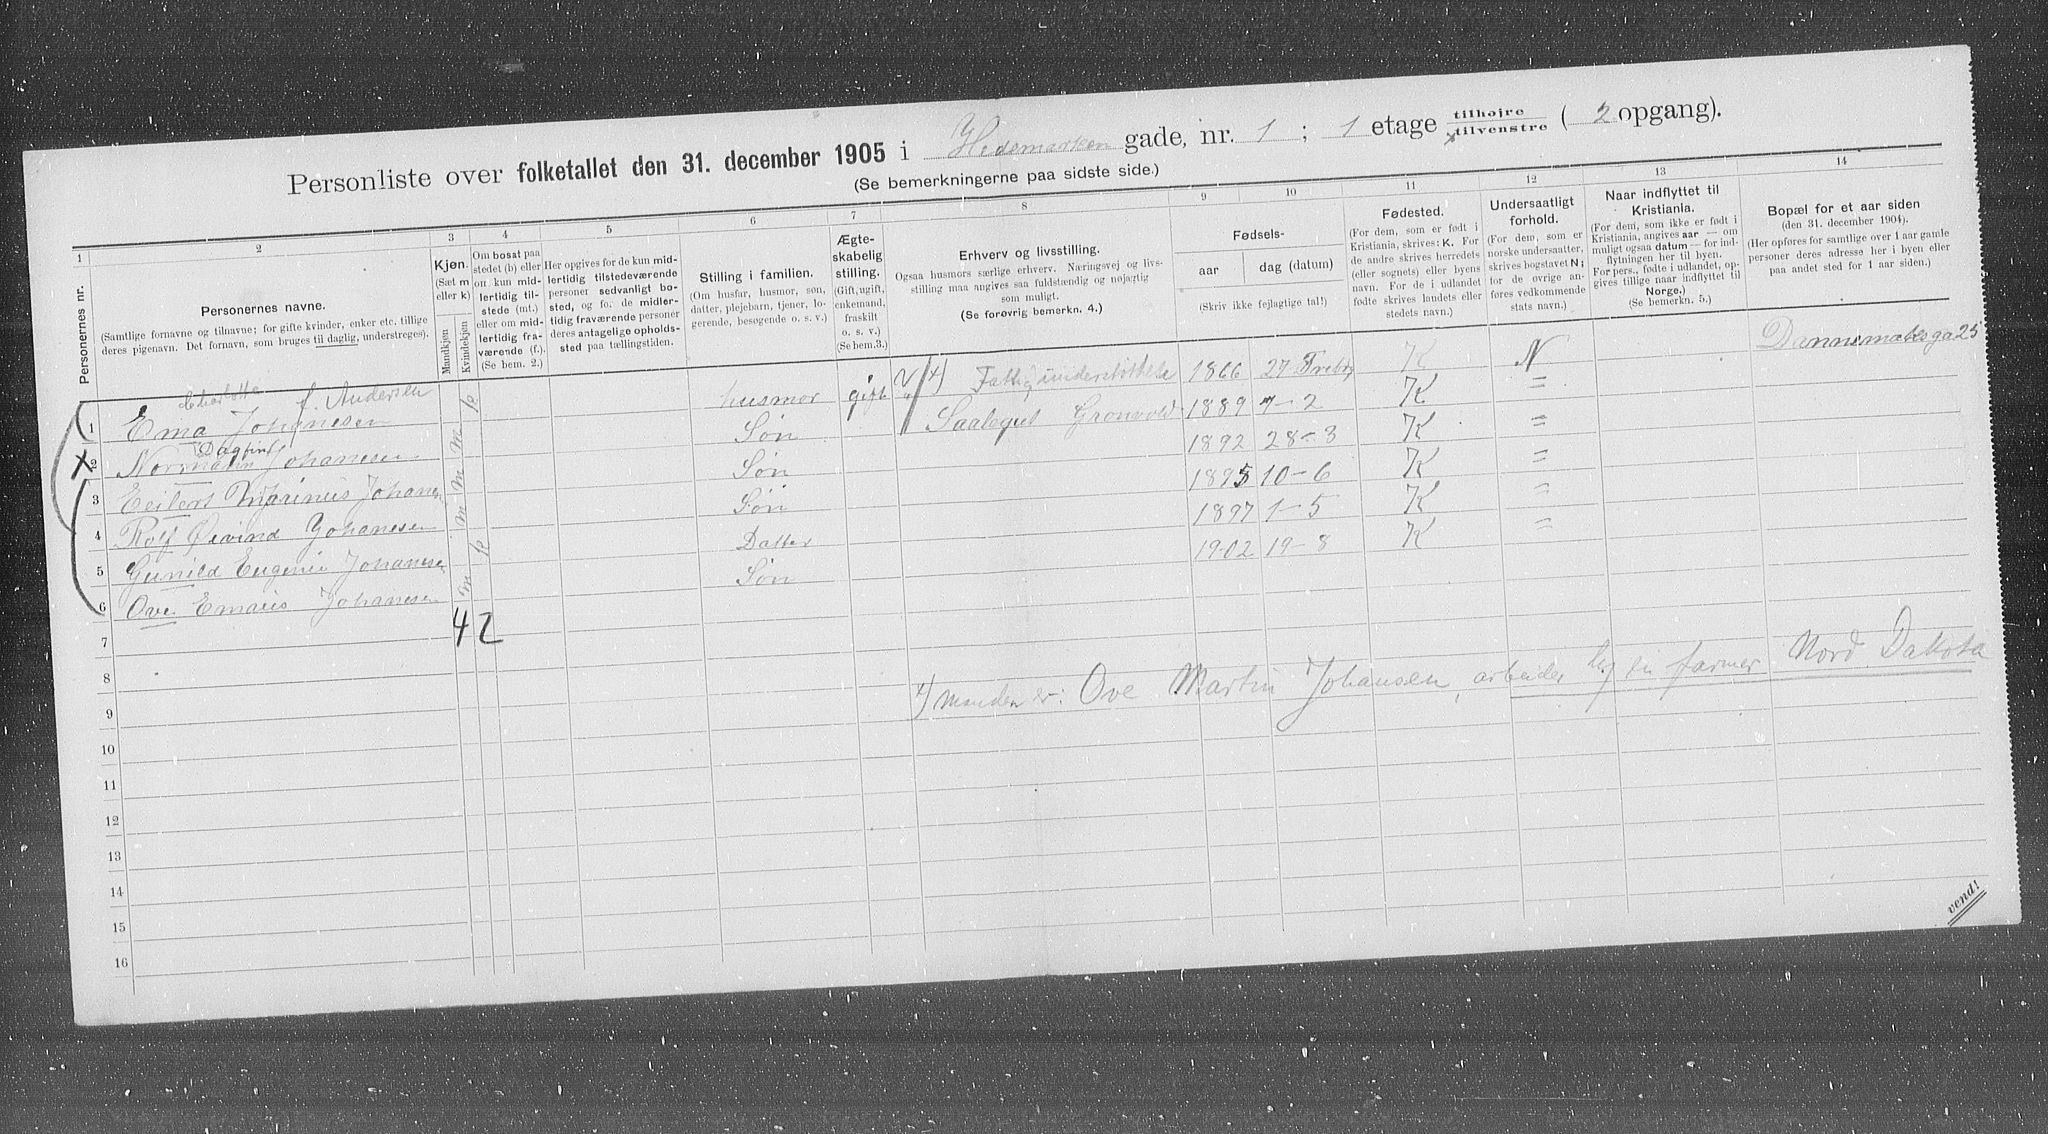 Personliste over folketallet den 31. december 1905 i Hedemarken gade, nr. 1 ; 1 etage tilhøjre / x tilvenstre ( 2 opgang).
(Se bemerkningerne paa sidste side.)
1 2 3 4 5 6 7 8 9 10 11 12 13 14
Personernes nr.
Personernes navne.
(Samtlige fornavne og tilnavne; for gifte kvinder, enker etc. tillige
deres pigenavn. Det fornavn, som bruges til daglig, understreges).
Kjøn.
(Sæt m
eller k)
Mandkjøn
Kvindekjøn
Om bosat paa
stedet (b) eller
om kun mid-
lertidig til-
stede (mt.)
eller om mid-
lertidig fra-
værende (f.).
(Se bem. 2.)
Her opgives for de kun mid-
lertidig tilstedeværende
personer sedvanligt bo-
sted, og for de midler-
tidig fraværende personer
deres antagelige opholds-
sted paa tællingstiden.
Stilling i familien.
(Om husfar, husmor, søn,
datter, plejebarn, tjener, lo-
gerende, besøgende o. s. v.)
Ægte-
skabelig
stilling.
(Gift, ugift,
enkemand,
fraskilt
o. s. v.)
(Se bem. 3.)
Erhverv og livsstilling.
Ogsaa husmors særlige erhverv. Næringsvej og livs-
stilling maa angives saa fuldstændig og nøjagtig
som muligt.
(Se forøvrig bemerkn. 4.)
Fødsels-
aar
dag (datum)
(Skriv ikke fejlagtige tal!)
Fødested.
(For dem, som er født i
Kristiania, skrives: K. For
de andre skrives herredets
(eller sognets) eller byens
navn. For de i udlandet
fødte skrives landets eller
stedets navn.)
Undersaatligt
forhold.
(For dem, som er
norske undersaatter,
skrives bogstavet N;
for de øvrige an-
føres vedkommende
stats navn.)
Naar indflyttet til
Kristiania.
(For dem, som ikke er født i
Kristiania, angives aar — om
muligt ogsaa datum — for ind-
flytningen her til byen.
For pers., fødte i udlandet, op-
gives tillige naar indflyttet til
Norge.)
(Se bemerkn. 5.)
Bopæl for et aar siden
(den 31. december 1904).
(Her opføres for samtlige over 1 aar gamle
personer deres adresse her i byen eller
paa andet sted for 1 aar siden.)
Charlotte f. Andersen
1 Ema Johanesen k husmor gift x) Fattigunderstøttela 1866 27 Frebr K N Dannemarksga 25
Dagfin
x 2 Normann Johanesen m Søn Saalegut Grønvold 1889 7-2 K "
3 Eeilert Marinius Johane m Søn 1892 28-3 K "
4 Rolf Øivind Johanesen m Søn 1895 10-6 K "
5 Gunild Eugenie Johanesen k Datter 1897 1-5 K "
6 Ove Emaus Johanesen m Søn 1902 19-8 K "
7 4 2
8 x) manden er: Ove Martin Johansen, arbeider hos en farmer Nord Dakota
9
10
11
12
13
14
15
16
vend!